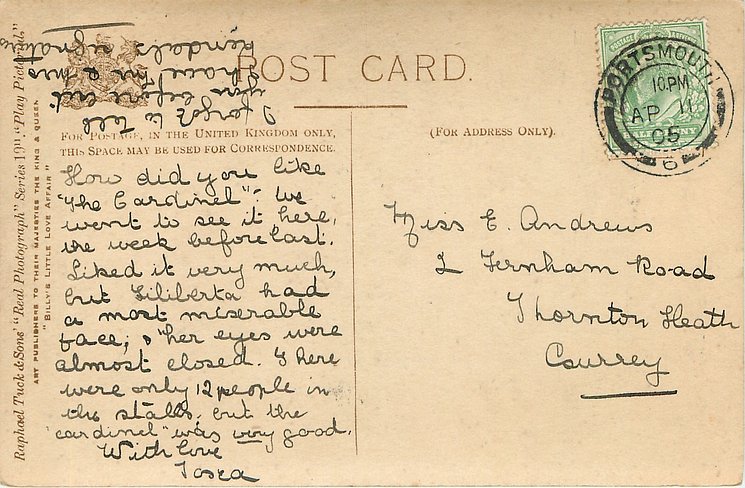 POST CARD.
FOR POSTAGE, IN THE UNITED KINGDOM ONLY,
THIS SPACE MAY BE USED FOR CORRESPONDENCE.
(FOR ADDRESS ONLY).
How did you like
"The Cardinel": We
went to see it here,
the week before last.
Liked it very much,
but Filiberta had
a most miserable
face; & her eyes were
almost closed. There
were only 12 people in
the stalls, but the
"cardinel" was very good.
With love
Tosca
I forgot to tell
you before but
I have Mr & Mrs
Kendal's signature
Miss E. Andrews
2 Fernham Road
Thornton Heath
Surrey
PORTSMOUTH
10.PM
AP 11
05
6
Raphael Tuck & Sons' "Real Photograph" Series 1911 "Play Pictorial."
ART PUBLISHERS TO THEIR MAJESTIES THE KING & QUEEN
"BILLY'S LITTLE LOVE AFFAIR"